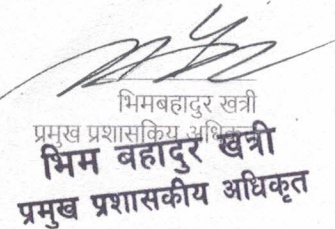 भिमबहादुर खत्री
प्रमुख प्रशासकिय अधिकृत
भिम बहादुर खत्री
प्रमुख प्रशासकीय अधिकृत